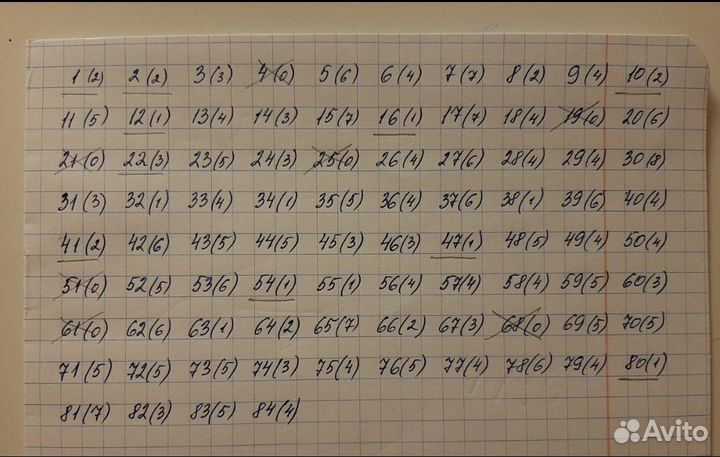 1(2) 2(2) 3(3) 4(0) 5(6) 6(4) 7(7) 8(2) 9(4) 10(2)
11(5) 12(1) 13(4) 14(3) 15(7) 16(1) 17(7) 18(4) 19(0) 20(6)
21(0) 22(3) 23(5) 24(3) 25(0) 26(4) 27(6) 28(4) 29(4) 30(8)
31(3) 32(1) 33(4) 34(1) 35(5) 36(4) 37(6) 38(1) 39(6) 40(4)
41(2) 42(6) 43(5) 44(5) 45(3) 46(3) 47(1) 48(5) 49(4) 50(4)
51(0) 52(5) 53(6) 54(1) 55(1) 56(4) 57(4) 58(4) 59(5) 60(3)
61(0) 62(6) 63(1) 64(2) 65(7) 66(2) 67(3) 68(0) 69(5) 70(5)
71(5) 72(5) 73(5) 74(3) 75(4) 76(5) 77(4) 78(6) 79(4) 80(1)
81(7) 82(3) 83(5) 84(4)
Avito